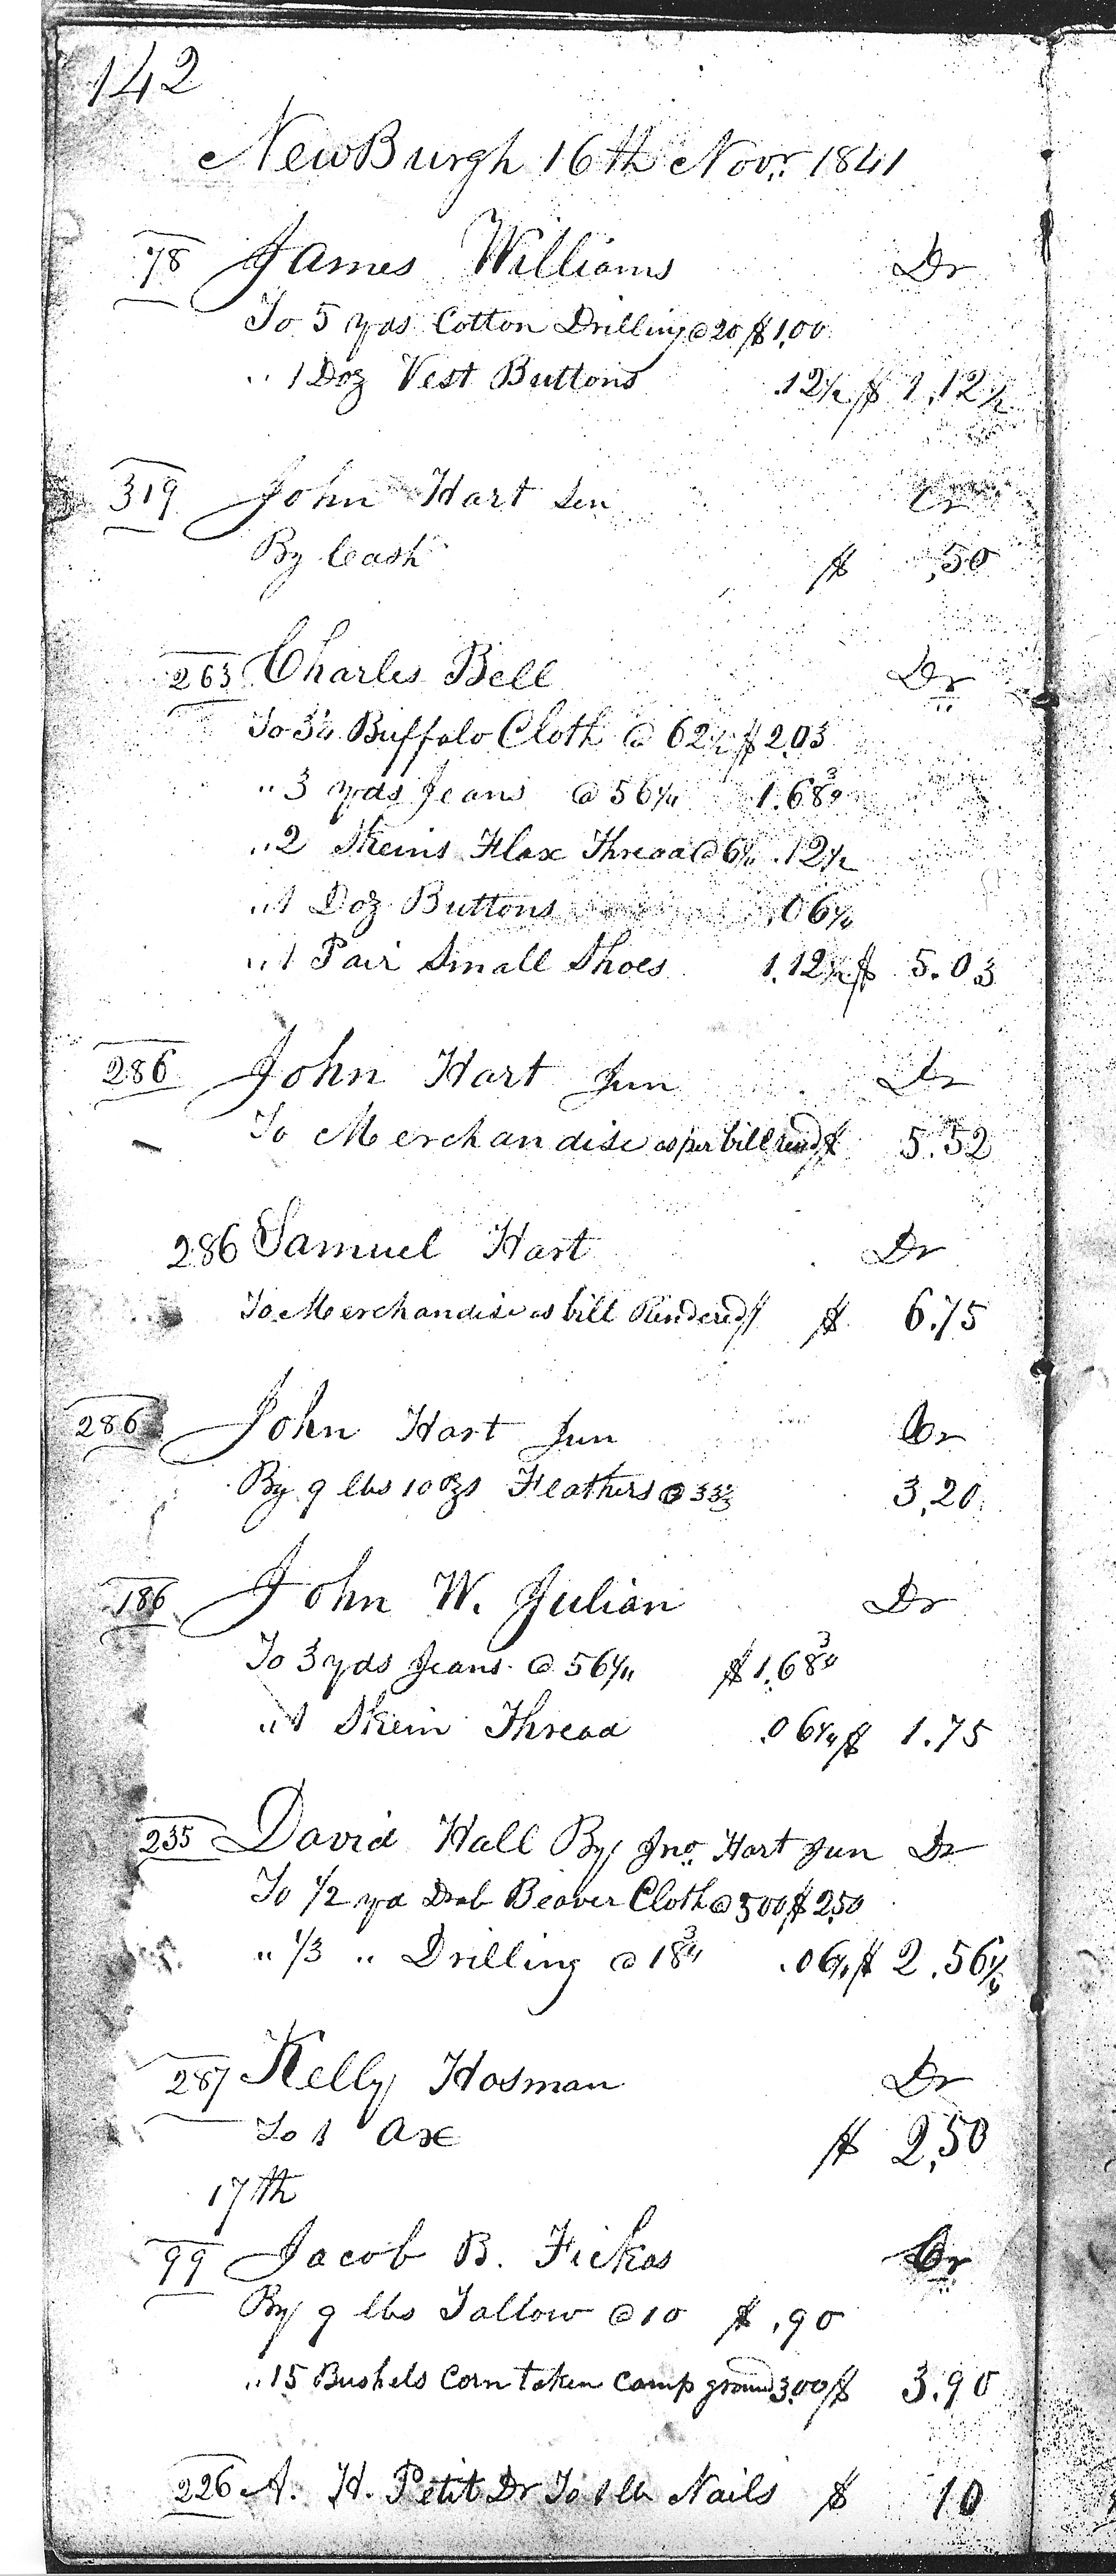 142
NewBurgh 16th Novr. 1841
78 James Williams Dr
To 5 yds Cotton Drilling @ 20 $1,00
" 1 Doz Vest Buttons .12½ $ 1.12½
319 John Hart Sen Cr
By Cash $ ,50
263 Charles Bell Dr
To 3¼ Buffalo Cloth @ 62½ $2.03
" 3 yds Jeans @ 56¼ 1.68¾
" 2 Skeins Flax Thread @ 6¼ .12½
" 1 Doz Buttons .06¼
" 1 Pair Small Shoes 1.12½ $ 5.03
286 John Hart Jun Dr
To Merchandise as per bill rend $ 5.52
286 Samuel Hart Dr
To Merchandise as bill Rendered $ 6.75
286 John Hart Jun Cr
By 9 lbs 10 ozs Feathers @ 33⅓ 3,20
186 John W. Julian Dr
To 3 yds Jeans @ 56¼ $1.68¾
" 1 Skein Thread .06¼ $ 1.75
235 David Hall By Jno. Hart Jun Dr
To 1/2 yd Drab Beaver Cloth @ 500 $ 2.50
" 1/3 " Drilling @ 18¾ .06¼ $ 2.56¼
287 Kelly Hosman Dr
To 1 Axe $ 2,50
17th
99 Jacob B. Fickas Cr
By 9 lbs Tallow @ 10 $ .90
" 15 Bushels Corn taken Camp ground 3.00 $ 3.90
226 A. H. Petit Dr To 1 lb Nails $ 10